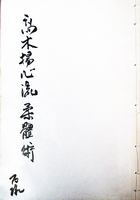 高木揚心流柔體術